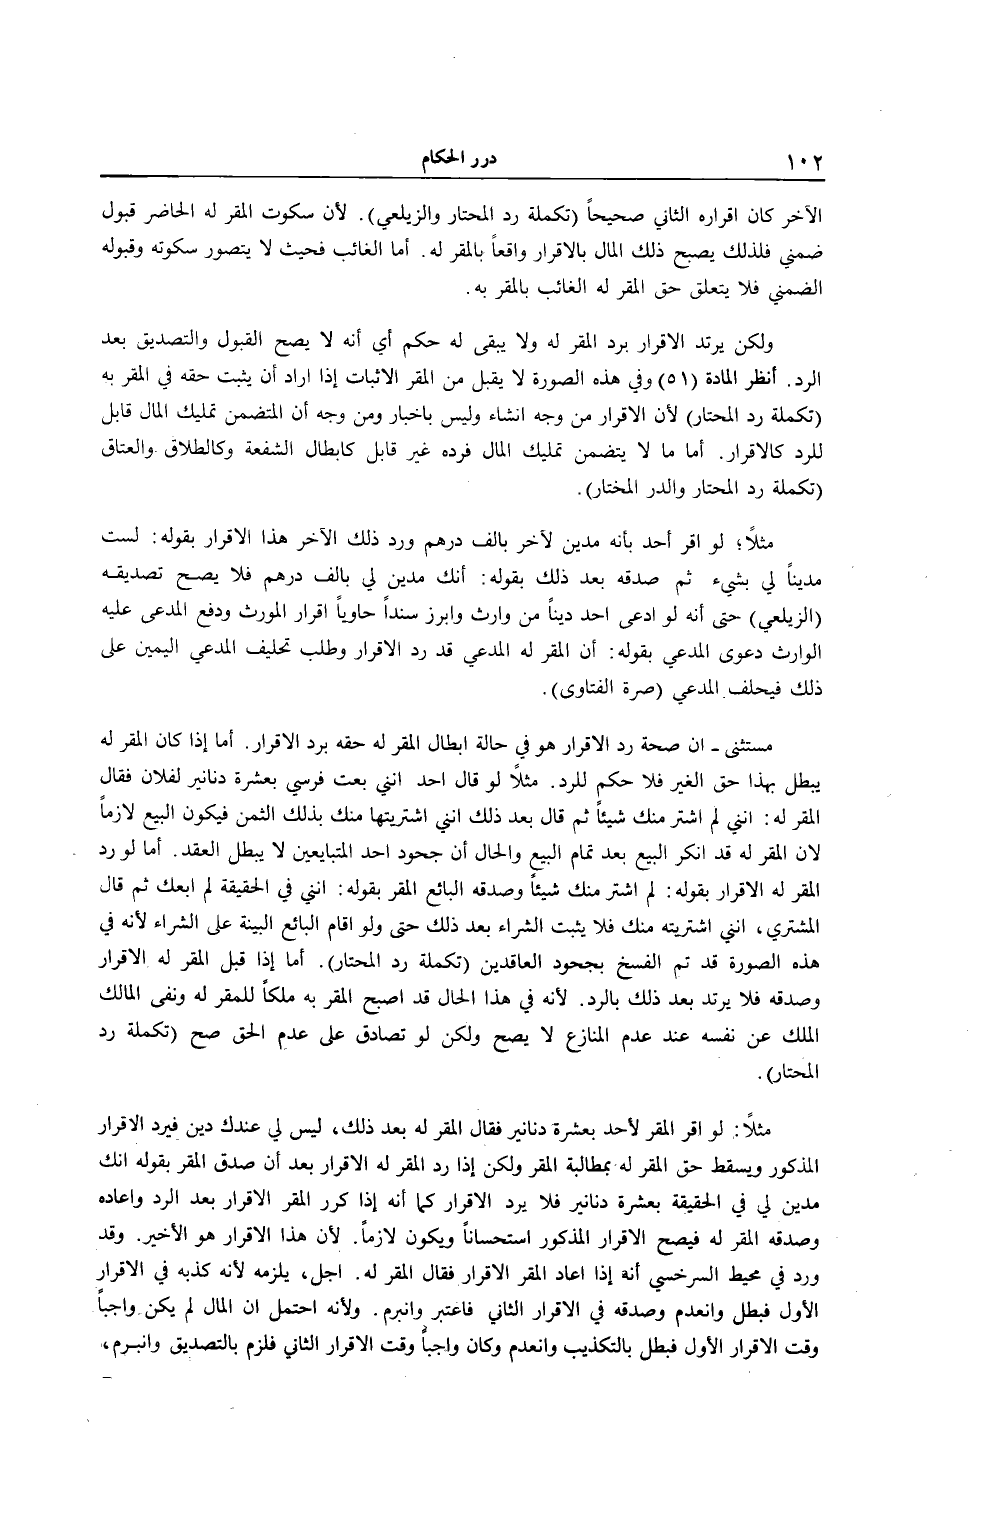 ١٠٢
درر الحكام
الآخر كان اقراره الثاني صحيحاً (تكملة رد المحتار والزيلعي). لأن سكوت المقر له الحاضر قبول
ضمني فلذلك يصبح ذلك المال بالاقرار واقعاً بالمقر له. أما الغائب فحيث لا يتصور سكوته وقبوله
الضمني فلا يتعلق حق المقر له الغائب بالمقر به.
ولكن يرتد الاقرار برد المقر له ولا يبقى له حكم أي أنه لا يصح القبول والتصديق بعد
الرد. أنظر المادة (٥١) وفي هذه الصورة لا يقبل من المقر الاثبات إذا اراد أن يثبت حقه في المقر به
(تكملة رد المحتار) لأن الاقرار من وجه انشاء وليس باخبار ومن وجه أن المتضمن تمليك المال قابل
للرد كالاقرار. أما ما لا يتضمن تمليك المال فرده غير قابل كابطال الشفعة وكالطلاق والعتاق
(تكملة رد المحتار والدر المختار).
مثلاً؛ لو اقر أحد بأنه مدين لآخر بالف درهم ورد ذلك الآخر هذا الاقرار بقوله: لست
مديناً لي بشيء ثم صدقه بعد ذلك بقوله: أنك مدين لي بالف درهم فلا يصح تصديقه
(الزيلعي) حتى أنه لو ادعى احد ديناً من وارث وابرز سنداً حاوياً اقرار المورث ودفع المدعى عليه
الوارث دعوى المدعي بقوله: أن المقر له المدعي قد رد الاقرار وطلب تحليف المدعي اليمين على
ذلك فيحلف المدعي (صرة الفتاوى).
مستثنى ـ ان صحة رد الاقرار هو في حالة ابطال المقر له حقه برد الاقرار. أما إذا كان المقر له
يبطل بهذا حق الغير فلا حكم للرد. مثلاً لو قال احد انني بعت فرسي بعشرة دنانير لفلان فقال
المقر له: انني لم اشتر منك شيئاً ثم قال بعد ذلك انني اشتريتها منك بذلك الثمن فيكون البيع لازماً
لان المقر له قد انكر البيع بعد تمام البيع والحال أن جحود احد المتبايعين لا يبطل العقد. أما لو رد
المقر له الاقرار بقوله: لم اشتر منك شيئاً وصدقه البائع المقر بقوله: انني في الحقيقة لم ابعك ثم قال
المشتري، انني اشتريته منك فلا يثبت الشراء بعد ذلك حتى ولو اقام البائع البينة على الشراء لأنه في
هذه الصورة قد تم الفسخ بجحود العاقدين (تكملة رد المحتار). أما إذا قبل المقر له الاقرار
وصدقه فلا يرتد بعد ذلك بالرد. لأنه في هذا الحال قد اصبح المقر به ملكاً للمقر له ونفى المالك
الملك عن نفسه عند عدم المنازع لا يصح ولكن لو تصادق على عدم الحق صح (تكملة رد
المحتار).
مثلاً: لو اقر المقر لأحد بعشرة دنانير فقال المقر له بعد ذلك، ليس لي عندك دين فيرد الاقرار
المذكور ويسقط حق المقر له بمطالبة المقر ولكن إذا رد المقر له الاقرار بعد أن صدق المقر بقوله انك
مدين لي في الحقيقة بعشرة دنانير فلا يرد الاقرار كما أنه إذا كرر المقر الاقرار بعد الرد واعاده
وصدقه المقر له فيصح الاقرار المذكور استحساناً ويكون لازماً. لأن هذا الاقرار هو الأخير. وقد
ورد في محيط السرخسي أنه إذا اعاد المقر الاقرار فقال المقر له. اجل، يلزمه لأنه كذبه في الاقرار
الأول فبطل وانعدم وصدقه في الاقرار الثاني فاعتبر وانبرم. ولأنه احتمل ان المال لم يكن واجباً
وقت الاقرار الأول فبطل بالتكذيب وانعدم وكان واجباً وقت الاقرار الثاني فلزم بالتصديق وانبرم،